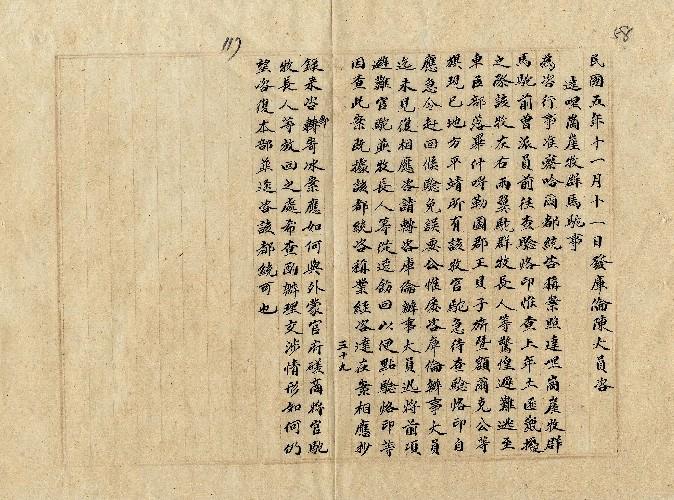 58
117
民國五年十一月十一日發庫倫陳大員咨
達里崗崖牧群馬駝事
為咨行事准察哈爾都統咨稱案照達里崗崖牧群
馬駝前曾派員前往查驗烙印惟查上年土匪竄擾
之際該牧左右兩翼駝群牧長人等驚惶避難逃至
車臣部落畢什呀勒圖郡王貝子旂暨額爾克公等
旗現已地方平靖所有該牧官駝急待查驗烙印自
應急令赶回候驗免誤要公惟屢咨庫倫辦事大員
迄未見復相應咨請轉咨庫倫辦事大員迅將前項
避難官駝並牧長人等從速飭回以便點驗烙印等
因查此案既據該都統咨稱業經咨達在案相應抄
三十九
錄來咨郵寄冰案應如何與外蒙官府磋商將官駝
牧長人等放回之處希查酌辦理交涉情形如何仍
望咨復本部並逕咨該都統可也